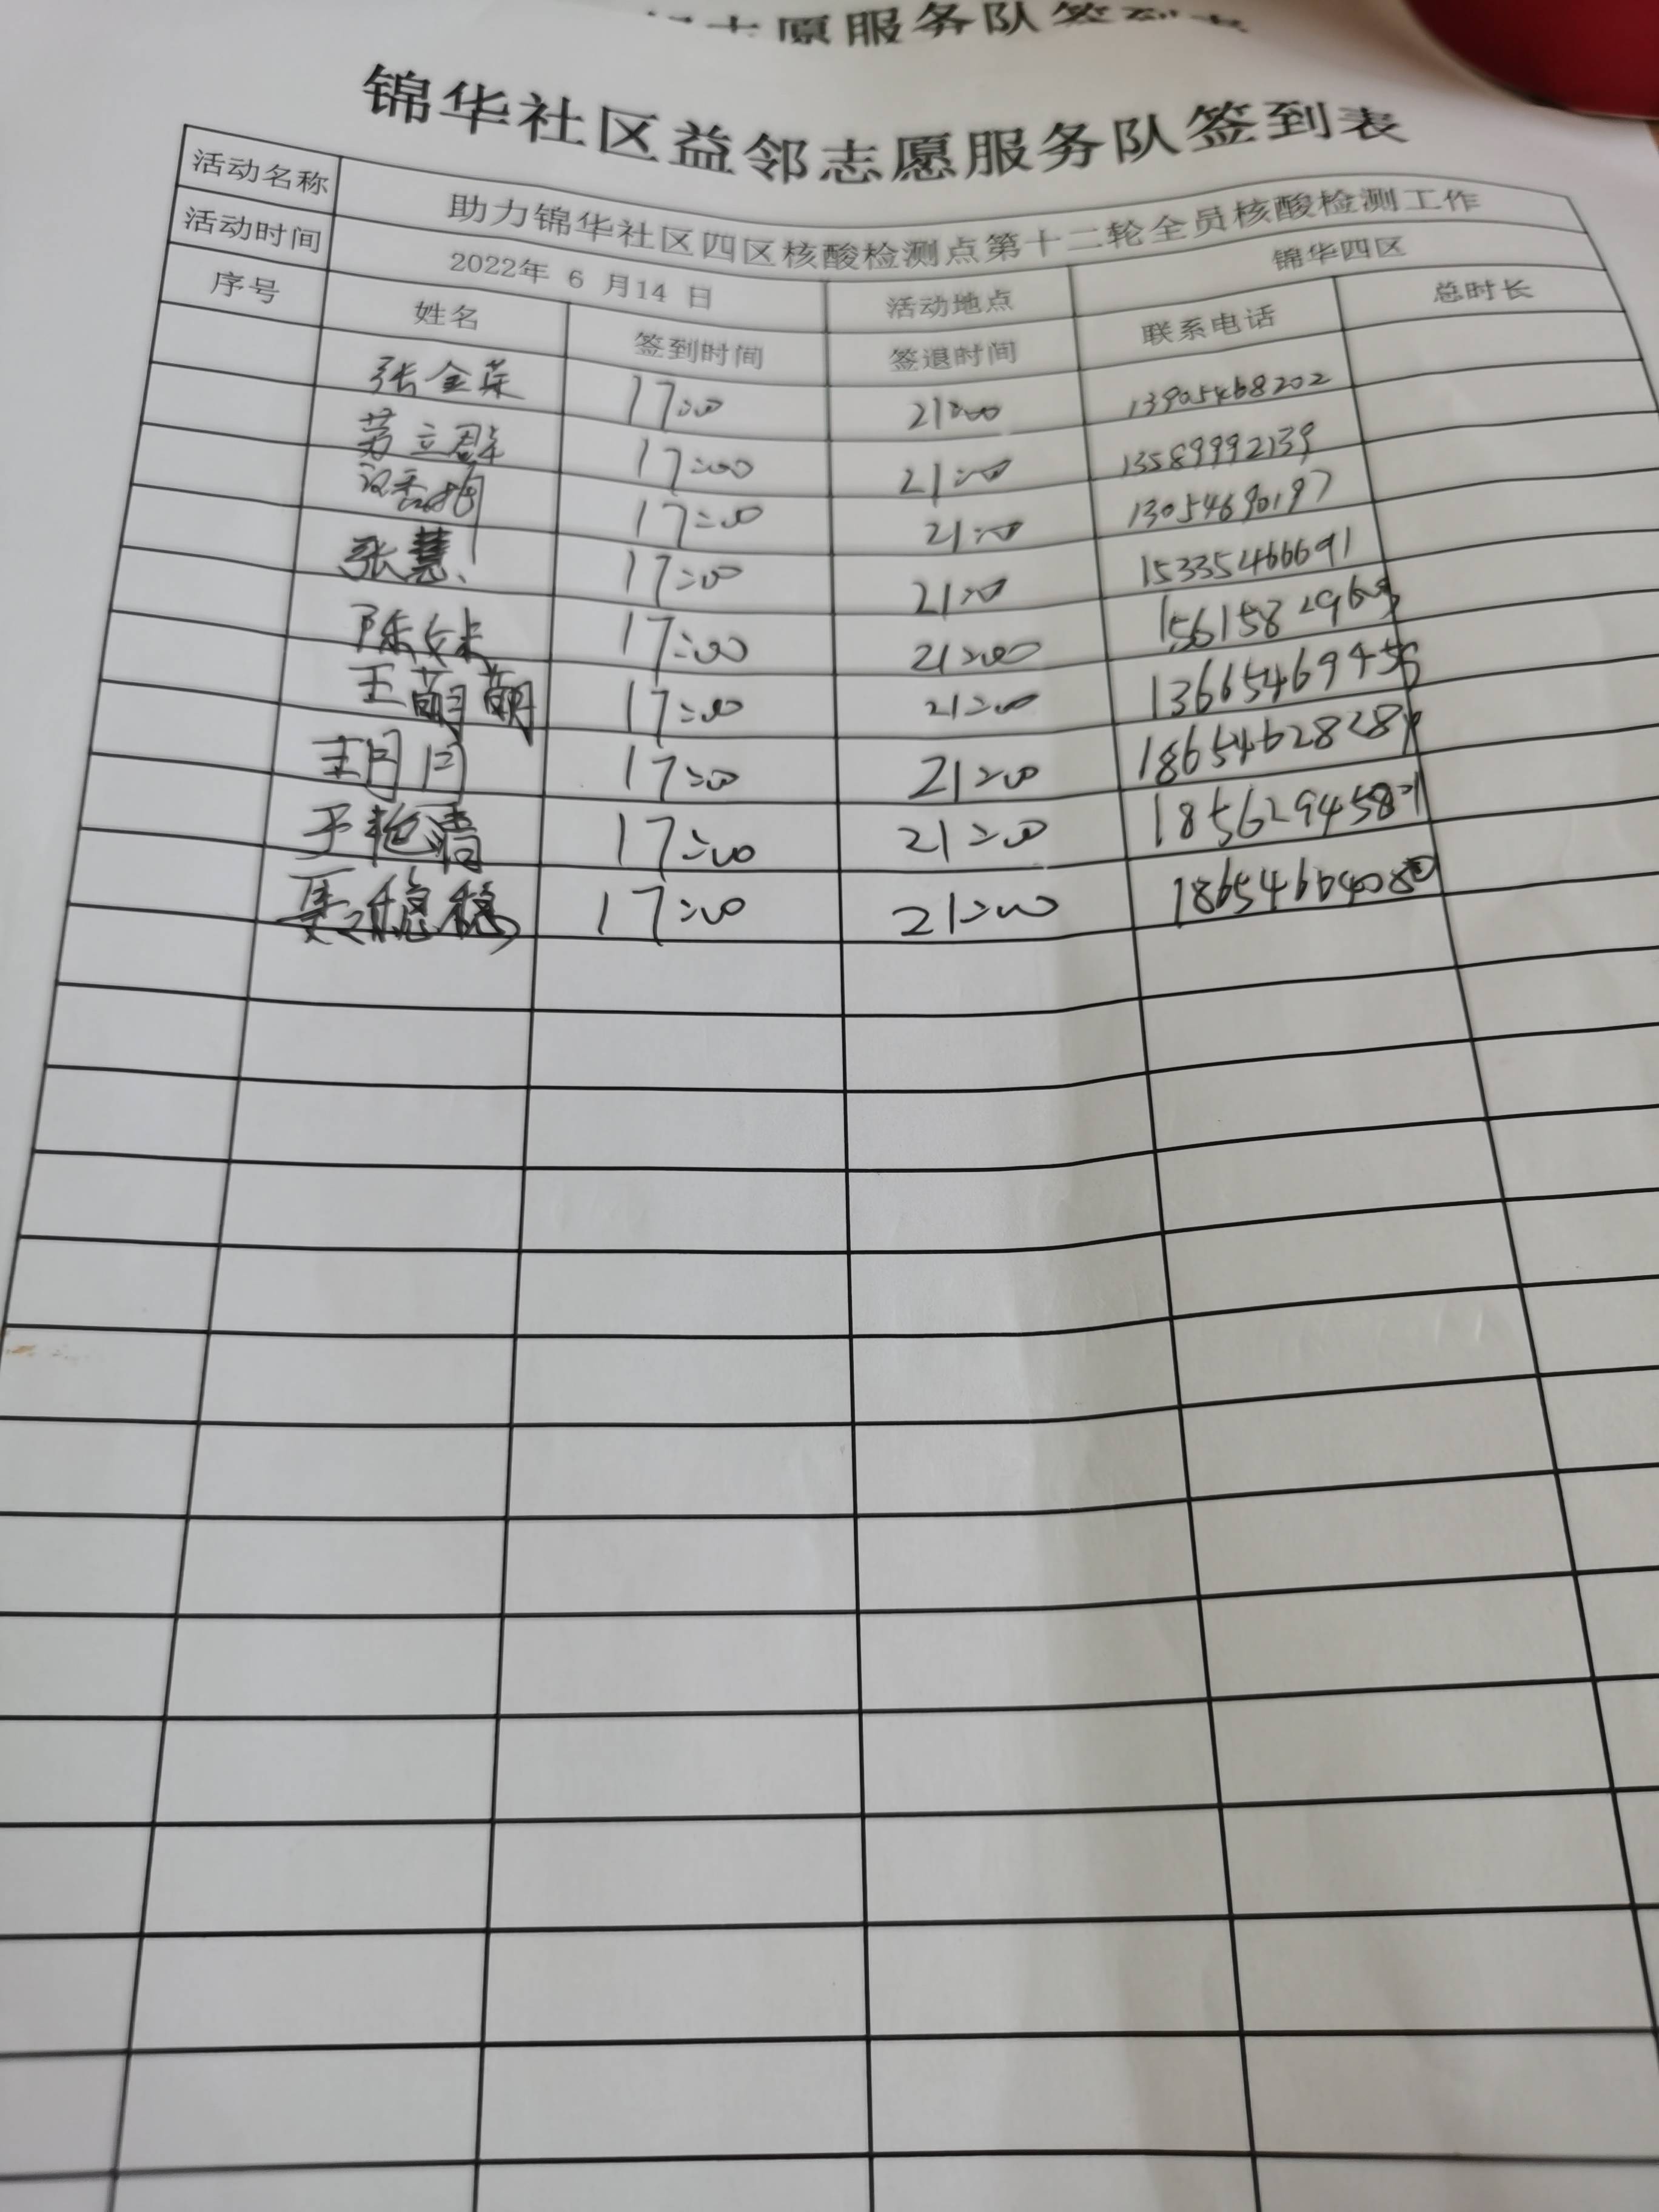 志愿服务队签到表
锦华社区益邻志愿服务队签到表
活动名称 助力锦华社区四区核酸检测点第十二轮全员核酸检测工作
活动时间 2022年 6 月14 日 活动地点 锦华四区
序号 姓名 签到时间 签退时间 联系电话 总时长
张金荣 17:00 21:00 13905468202
劳立群 17:00 21:00 13589992139
17:00 21:00 13054690197
张慧 17:00 21:00 15335466691
陈 17:00 21:00
王萌萌 17:00 21:00
王月月 17:00 21:00
于艳清 17:00 21:00
稳稳 17:00 21:00